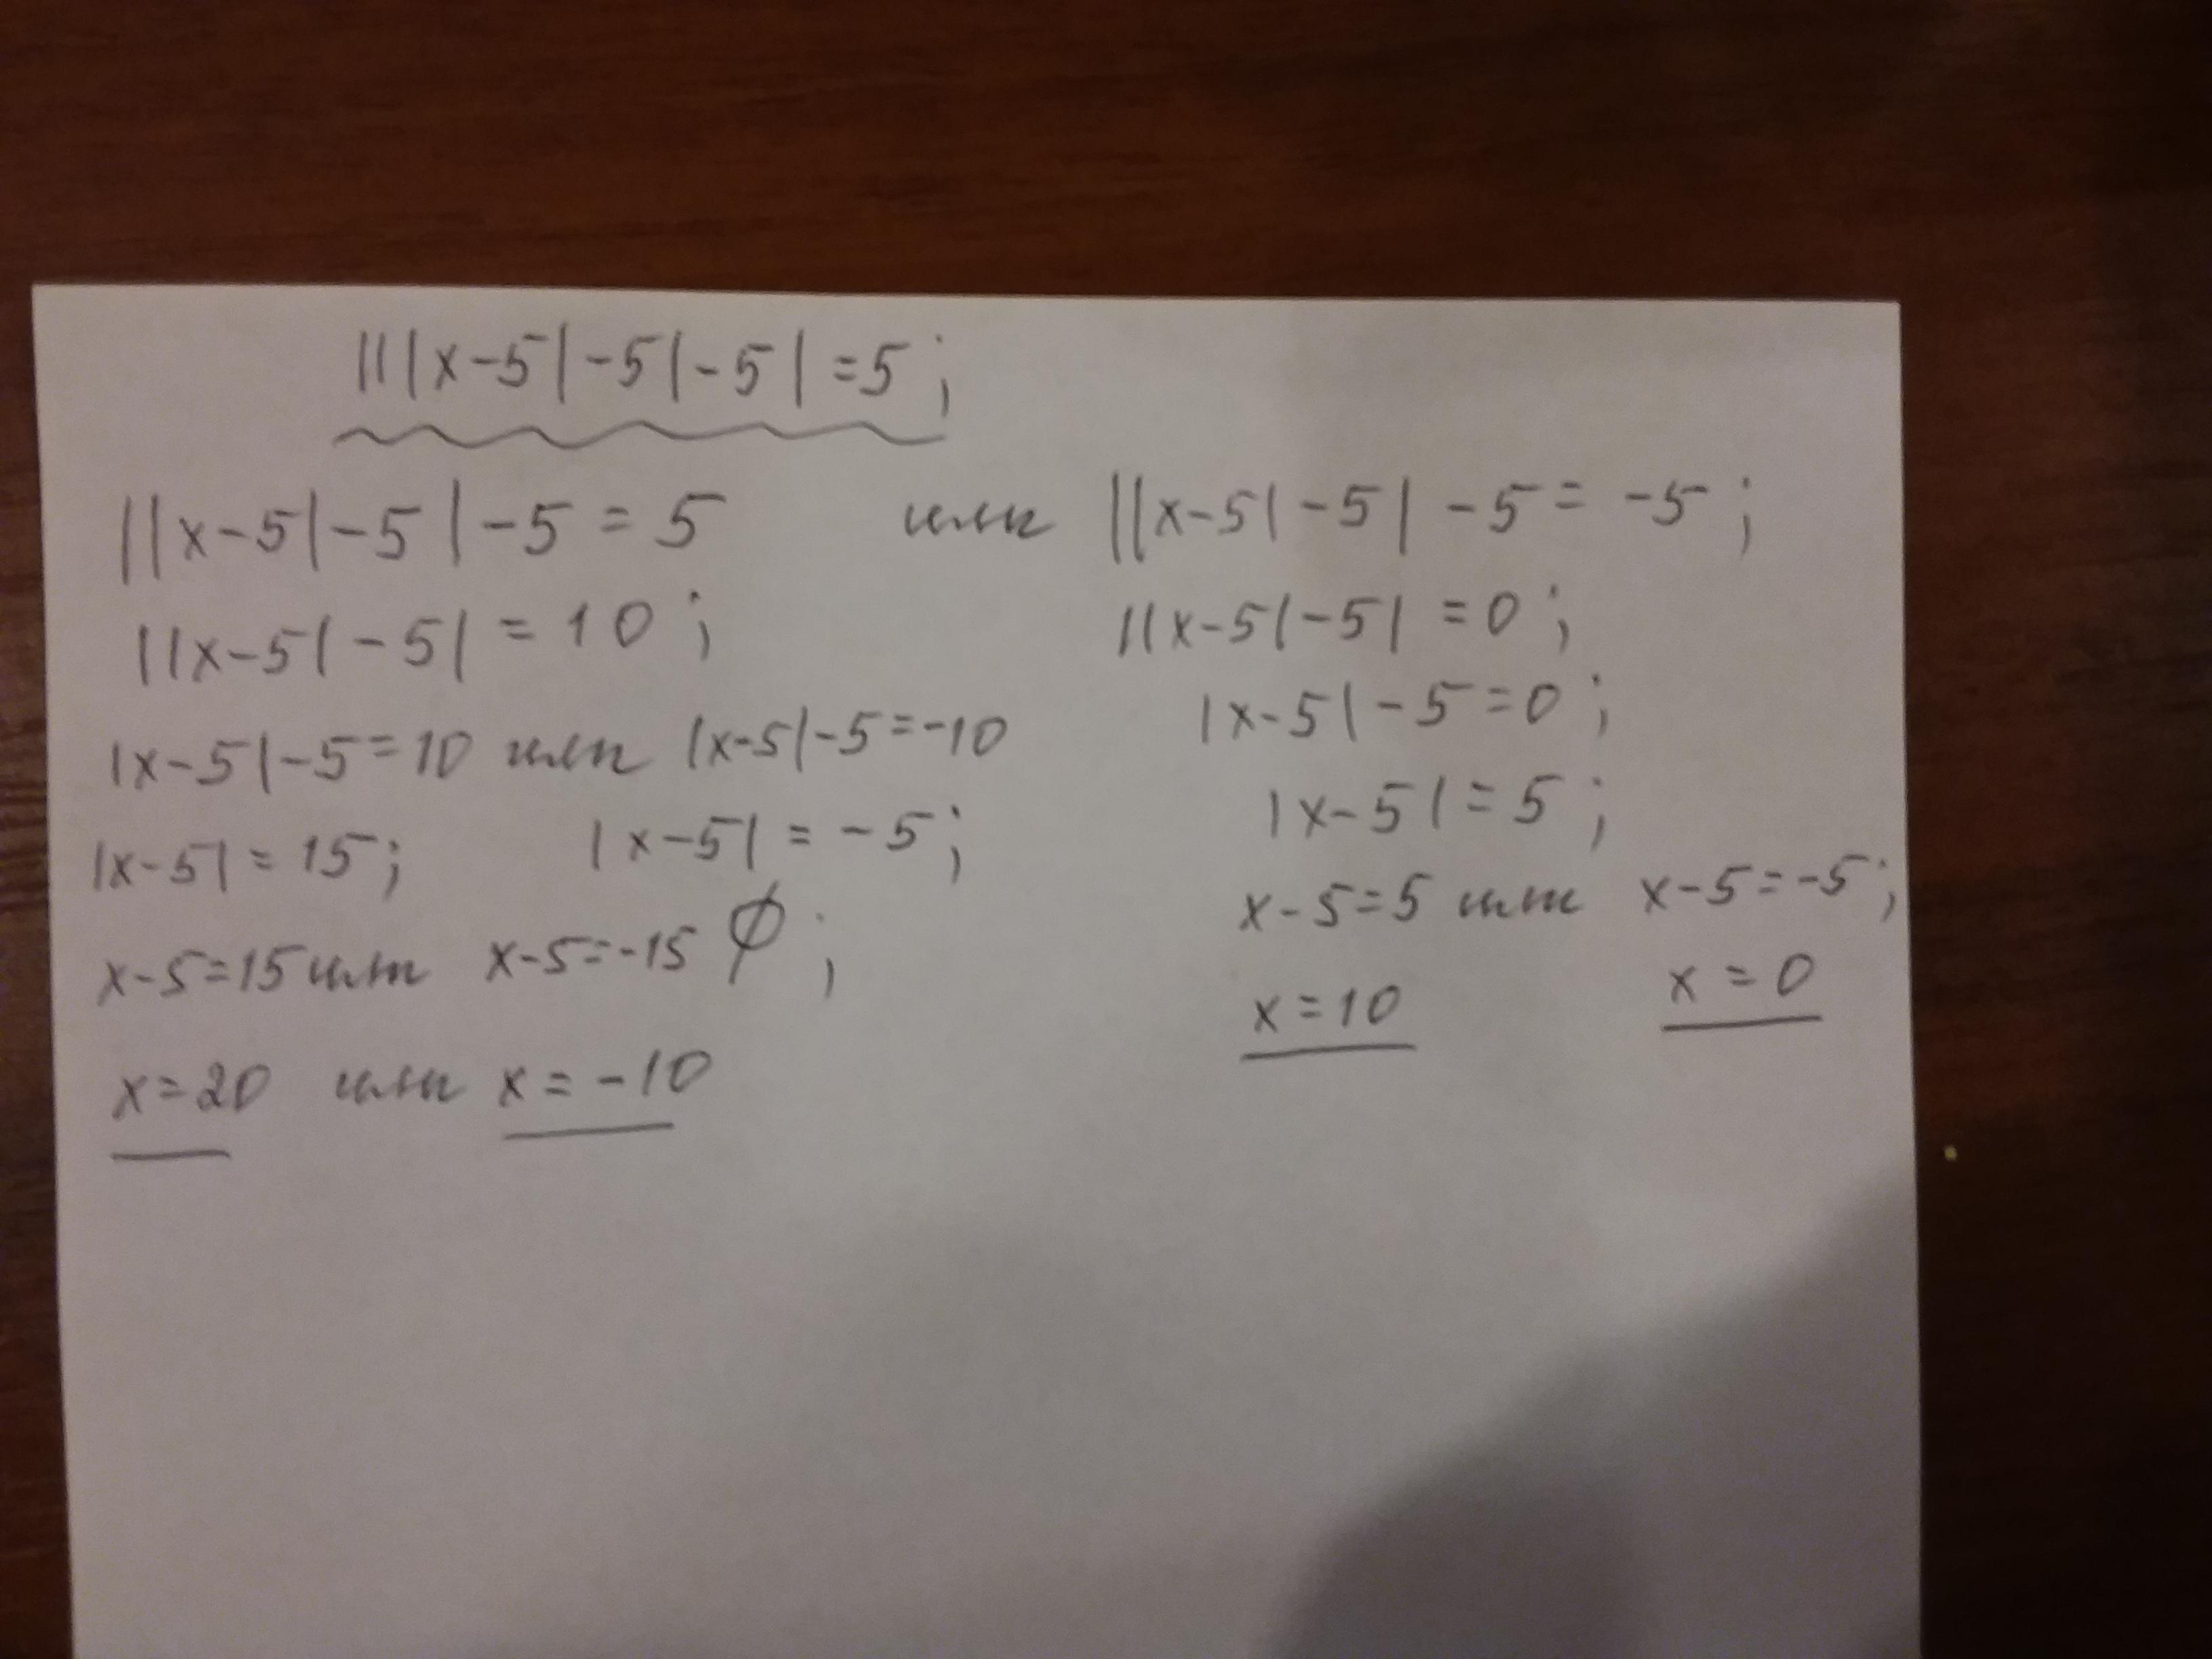 |||x-5|-5|-5|=5;
||x-5|-5|-5=5 или ||x-5|-5|-5=-5;
||x-5|-5|=10; ||x-5|-5|=0;
|x-5|-5=10 или |x-5|-5=-10 |x-5|-5=0;
|x-5|=15; |x-5|=-5; |x-5|=5;
x-5=15 или x-5=-15 ∅; x-5=5 или x-5=-5;
x=20 или x=-10 x=10 x=0